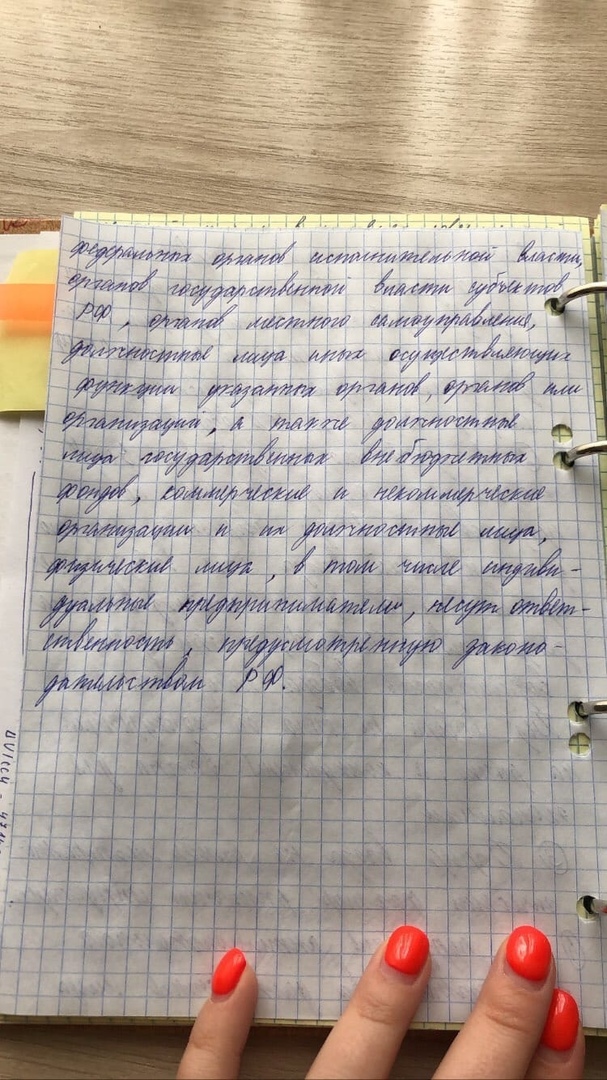 федеральных органов исполнительной власти,
органов государственной власти субъектов
РФ, органов местного самоуправления,
должностные лица иных осуществляющих
функции указанных органов, органов или
организации, а также должностные
лица государственных внебюджетных
фондов, коммерческие и некоммерческие
организации и их должностные лица,
физические лица, в том числе индиви-
дуальные предприниматели, несут ответ-
ственность, предусмотренную законо-
дательством РФ.